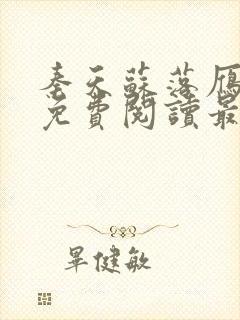 奉天蘇落雁
免費閱讀最
畢健敏